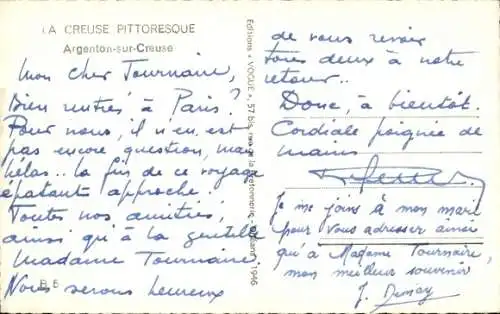 LA CREUSE PITTORESQUE
Argenton-sur-Creuse
Mon cher Tournaire,
Bien rentrés à Paris?
Pour nous, il n'en est
pas encore question, mais
hélas.. la fin de ce voyage
épatant approche!
Toutes nos amitiés,
ainsi qu'à la gentille
Madame Tournaire
Nous serons heureux
B 5
Editions « VOGUE », 57 bis, rue de la
1946
de vous revoir
tous deux à notre
retour..
Donc, à bientôt.
Cordiale poignée de
mains
Je me joins à mon mari
pour vous adresser ainsi
qu'à Madame Tournaire,
mon meilleur souvenir